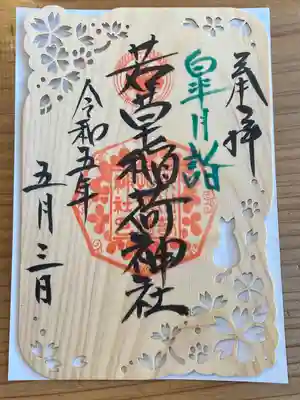 奉拝
皐月詣
若宮稲荷神社
令和五年
五月三日